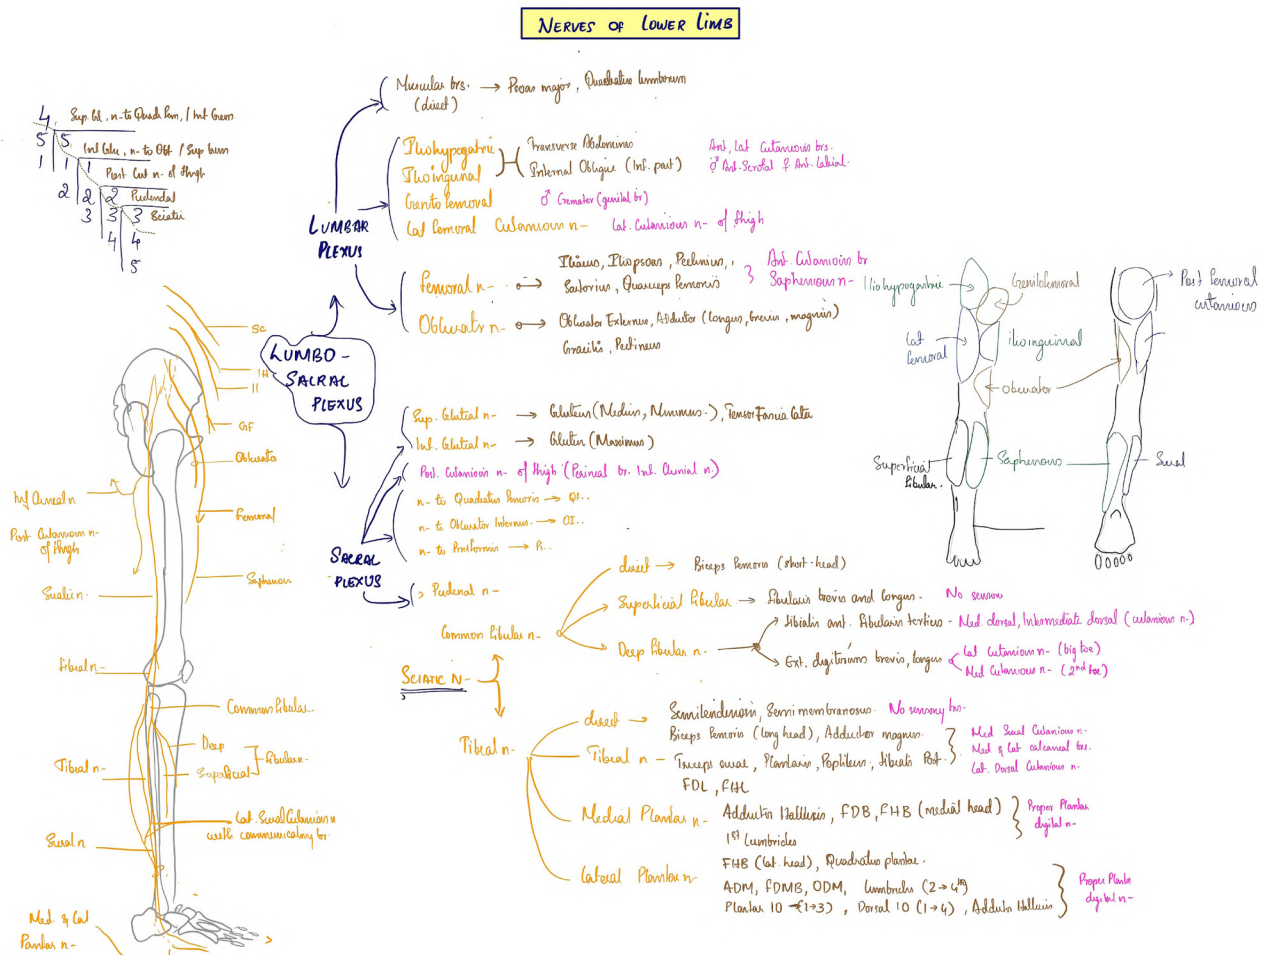 NERVES OF LOWER LIMB
4 Sup. Gl, n- to Quadr Fem, / Inf Gem
5 5 Inf Glu, n- to Obt / Sup Gem
1 1 1 Post Cut n- of thigh
2 2 2 Pudendal
3 3 3 Sciatic
4 4
5
LUMBO-
SACRAL
PLEXUS
LUMBAR
PLEXUS
Muscular brs. → Psoas major, Quadratus lumborum
(direct)
Iliohypogatric
Ilioinguinal
Transverse Abdominis
Internal Oblique (Inf. part)
Ant, Lat Cutaneous brs.
♂ Ant-Scrotal ♀ Ant-Labial.
Genito femoral
♂ Cremater (genital br)
Lat Femoral Cutaneous n-
Lat. Cutanious n- of thigh
Femoral n-
Iliacus, Iliopsoas, Pectinius,
Sartorius, Quariceps Femoris
Ant. Cutanioin br
Saphenious n-
Obturator n-
Obturator Externus, Adductor (longus, brevis, magnus)
Gracilis, Pectineus
SACRAL
PLEXUS
Sup. Gluteal n- → Gluteus (Medius, Minimus.), Tensor Fascia Latae
Inf. Gluteal n- → Gluteu (Maximus)
Post. Cutanious n- of thigh (Perineal br. Inf. Clunial n.)
n- to Quadratus Femoris → QF..
n- to Obturator Internus. → OI..
n- to Piriformis → Pi..
Pudenal n-
SCIATIC N-
Common fibular n-
direct → Biceps Femoris (short-head)
Superficial fibular → fibularis brevis and longus. No sensory
Deep fibular n-
tibialis ant. fibularis tertius - Med dorsal, Intermediate dorsal (cutanious n-)
Ext. digitoriums brevis, longus
Lat Cutanious n- (big toe)
Med Cutaneous n- (2nd toe)
Tibeal n-
direct → Semitendinosis, Semimembranosus. No sensory brs.
Biceps Femoris (long head), Adductor magnus.
Tibeal n - Triceps surae, Plantaris, Popliteus, tibialis Post.
FDL, FHL
Med Sural Cutanious n-
Med & Lat calcaneal brs.
Lat. Dorsal Cutanious n.
Medial Plantar n-
Adductor Hallucis, FDB, FHB (medial head)
1st lumbricles
Proper Plantar
digital n-
Lateral Plantar n-
FHB (lat. head), Quadratus plantae.
ADM, FDMB, ODM, lumbricles (2→4th)
Plantar IO (1→3), Dorsal IO (1→4), Adductor Hallucis
Proper Planta
digital n-
SC
IH
II
GF
Obturator
Femoral
Saphenous
Inf Cluneal n
Post Cutanious n-
of thigh
Sciatic n-
Tibeal n-
Common fibular
Deep
Superficial
fibular n-
Tibeal n-
Lat. Sural Cutanious n
with communicating br.
Sural n
Med & Lat
Plantar n-
Iliohypogartric
Genitofemoral
Lat
femoral
Ilioinguinal
Obturator
Superficial
fibular.
Saphenous
Post Femoral
cutanious
Sural